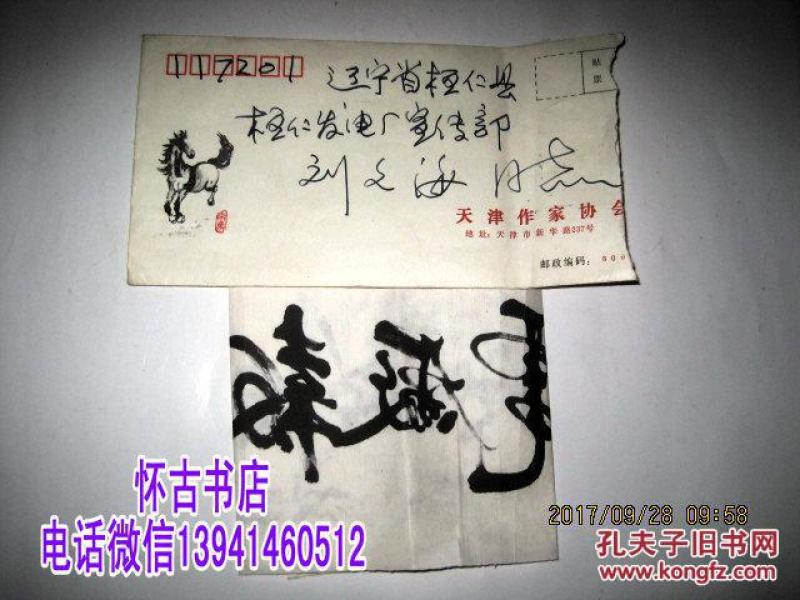 117201
贴票
辽宁省桓仁县
桓仁发电厂宣传部
刘文海同志
天津作家协会
地址：天津市新华路237号
邮政编码：000
怀古书店
电话微信13941460512
2017/09/28 09:58
孔夫子旧书网
www.kongfz.com